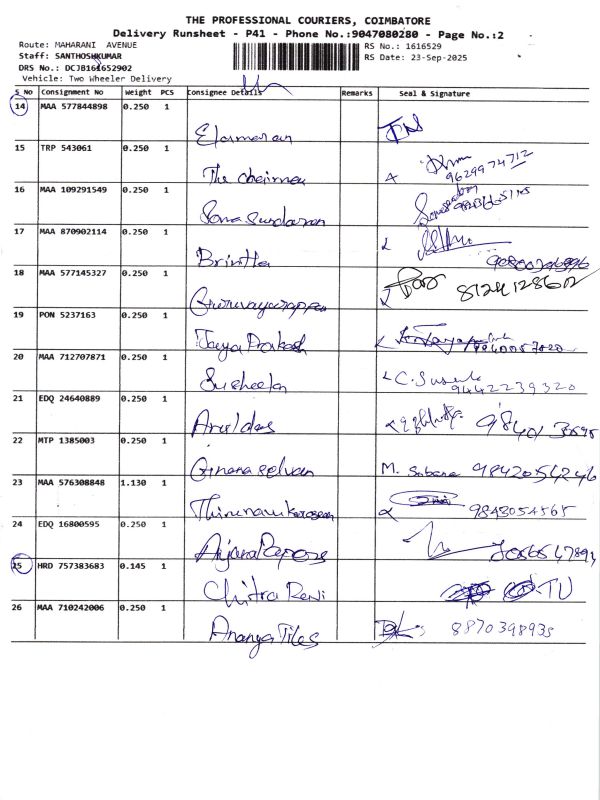 THE PROFESSIONAL COURIERS, COIMBATORE
Delivery Runsheet - P41 - Phone No.:9047080280 - Page No.:2
Route: MAHARANI AVENUE
RS No.: 1616529
Staff: SANTHOSHKUMAR
RS Date: 23-Sep-2025
DRS No.: DCJB161652902
Vehicle: Two Wheeler Delivery
S No Consignment No Weight PCS Consignee Details Remarks Seal & Signature
14 MAA 577844898 0.250 1
Elamaran
15 TRP 543061 0.250 1
The chairman 9629974712
16 MAA 109291549 0.250 1
Sona Sundaram
17 MAA 870902114 0.250 1
Brintha
18 MAA 577145327 0.250 1
8124128612
19 PON 5237163 0.250 1
Jaya Prakash
20 MAA 712707871 0.250 1
Susheela C. Suseela 9442239320
21 EDQ 24640889 0.250 1
Aruldas
22 MTP 1385003 0.250 1
Gnanaselvan M. Sobana 9842054246
23 MAA 576308848 1.130 1
9843054565
24 EDQ 16800595 0.250 1
25 HRD 757383683 0.145 1
Chitra Revi
26 MAA 710242006 0.250 1
Ananya Tiles 8870398935